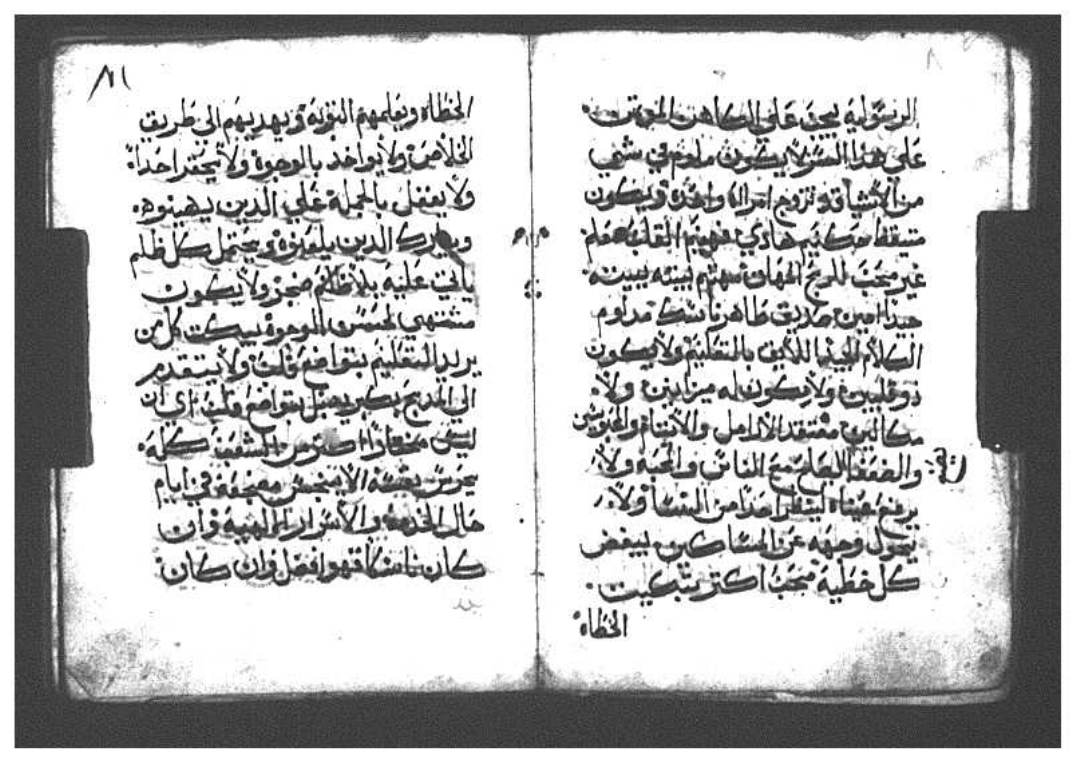 الرسولية يجب علي الكاهن الموتمن
علي هذا السر ولا يكون ملوم في شي
من الاشيا قد تزوج امراة واحدة ويكون
متيقظ حكيم هادي فهيم القلب معلم
غير محب للربح مهتم ببيته
جيدا امين صديق طاهر ناسك مداوم
الكلام الجيد اللايق بالتعليم ولا يكون
ذو قلبين ولا يكون له ميزانين ولا
مكيالين مفتقد الارامل والايتام والمحبوسين
والضعفا الصلح مع الناس والمحبة ولا
يرفع عيناه لينظر احدا من النسا ولا
يحول وجهه عن المساكين يبغض
كل خطية محب اكتر تبكيت
الخطاه
٨١
الخطاة ويعلمهم التوبة ويهديهم الي طريق
الخلاص ولا ياخد بالوجوة ولا يحتقر احدا
ولا يفعل بالجملة علي الدين يهينوه
ويبارك الدين يلعنوة ويحتمل كل ظلم
ياتي علية بلا ضجر ولا يكون
مشتهي الوجوة يبكت كل من
يريد التعليم بتواضع قلب ولا يتقدم
الي المديح بكبر بل بتواضع قلب اي ان
ليس مختارا اكتر من الشعب كله
يحرس نفسه الا مضجعة في ايام
حال الخدمة والاسرار الالهية وان
كان ناسكا فهو افضل وان كان